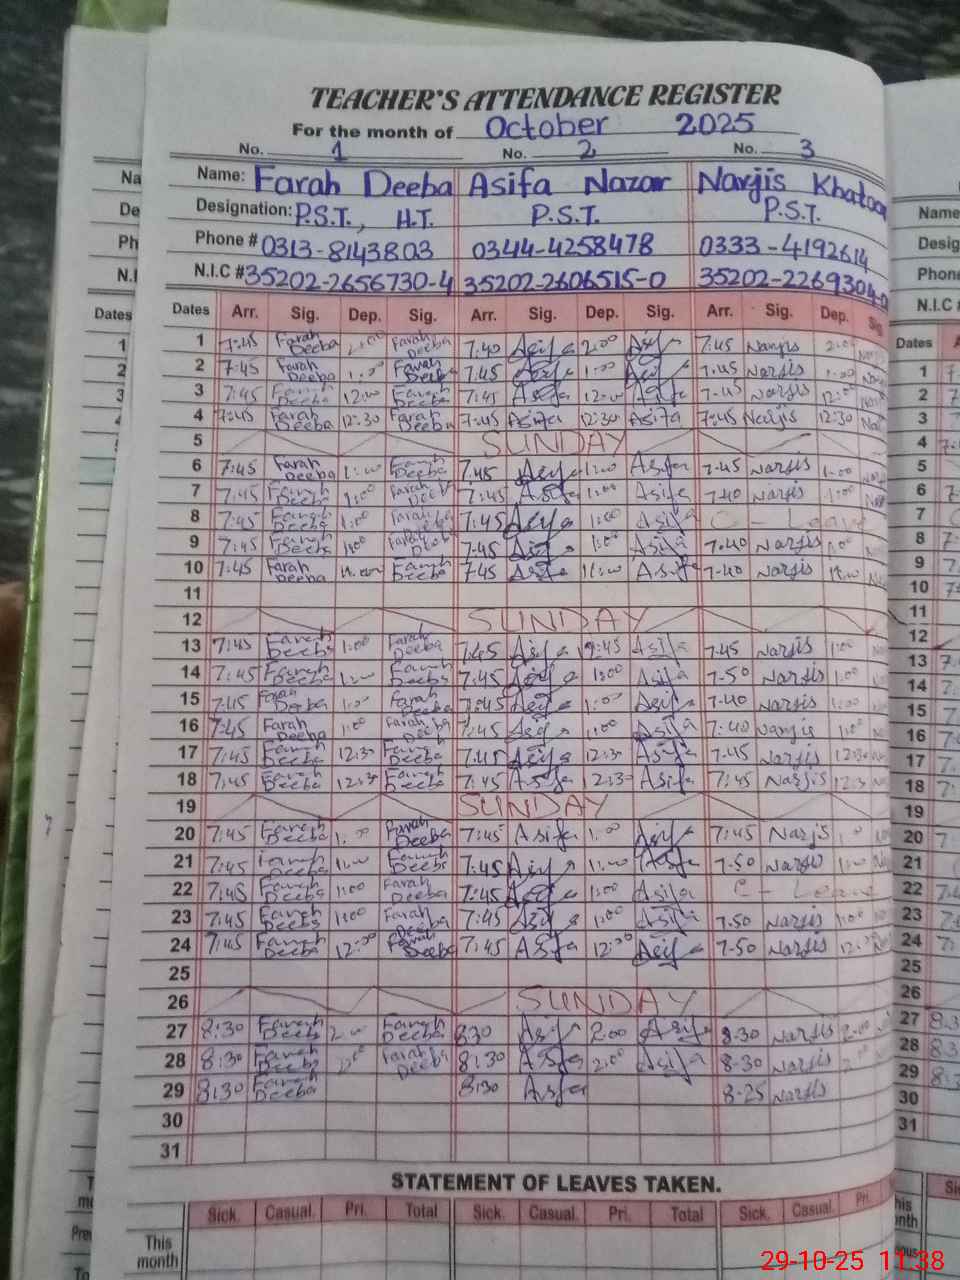 TEACHER'S ATTENDANCE REGISTER
For the month of October 2025
No. 1 No. 2 No. 3
Name: Farah Deeba Asifa Nazar Narjis Khatoon
Designation: P.S.T., H.T. P.S.T. P.S.T.
Phone # 0313-8143803 0344-4258478 0333-4192614
N.I.C # 35202-2656730-4 35202-2606515-0 35202-2269304-0
Dates Arr. Sig. Dep. Sig. Arr. Sig. Dep. Sig. Arr. Sig. Dep. Sig
1 7:45 Farah Deeba 2:00 Farah Deeba 7:40 Asifa 2:00 Asifa 7:45 Narjis 2:00
2 7:45 Farah Deeba 1:00 Farah Deeba 7:45 Asifa 1:00 Asifa 7:45 Narjis 1:00
3 7:45 Farah Deeba 12:00 Farah Deeba 7:45 Asifa 12:00 Asifa 7:45 Narjis 12:00
4 7:45 Farah Deeba 12:30 Farah Deeba 7:45 Asifa 12:30 Asifa 7:45 Narjis 12:30
5 SUNDAY
6 7:45 Farah Deeba 1:00 Farah Deeba 7:45 Asifa 1:00 Asifa 7:45 Narjis 1:00
7 7:45 Farah Deeba 1:00 Farah Deeba 7:45 Asifa 1:00 Asifa 7:40 Narjis 1:00
8 7:45 Farah Deeba 1:00 Farah Deeba 7:45 Asifa 1:00 Asifa C - Leave
9 7:45 Farah Deeba 1:00 Farah Deeba 7:45 Asifa 1:00 Asifa 7:40 Narjis 1:00
10 7:45 Farah Deeba Farah Deeba 7:45 Asifa Asifa 7-40 Narjis
11
12 SUNDAY
13 7:45 Farah Deeba 1:00 Farah Deeba 7:45 Asifa Asifa 7:45 Narjis 1:00
14 7:45 Farah Deeba 1:00 Farah Deeba 7:45 Asifa 1:00 Asifa 7-50 Narjis 1:00
15 7:45 Farah Deeba 1:00 Farah Deeba 7:45 Asifa 1:00 Asifa 7-40 Narjis 1:00
16 7:45 Farah Deeba 1:00 Farah Deeba 7:45 Asifa 1:00 Asifa 7:40 Narjis 1:00
17 7:45 Farah Deeba 12:30 Farah Deeba 7:45 Asifa 12:30 Asifa 7:45 Narjis 12:30
18 7:45 Farah Deeba 12:30 Farah Deeba 7:45 Asifa 12:30 Asifa 7:45 Narjis 12:30
19 SUNDAY
20 7:45 Farah Deeba 1:00 Farah Deeba 7:45 Asifa 1:00 Asifa 7:45 Narjis
21 7:45 Farah Deeba 1:00 Farah Deeba 7:45 Asifa 1:00 Asifa 7-50 Narjis 1:00
22 7:45 Farah Deeba 1:00 Farah Deeba 7:45 Asifa 1:00 Asifa C - Leave
23 7:45 Farah Deeba 1:00 Farah Deeba 7:45 Asifa 1:00 Asifa 7.50 Narjis 1:00
24 7:45 Farah Deeba 12:30 Farah Deeba 7:45 Asifa 12:30 Asifa 7-50 Narjis
25
26 SUNDAY
27 8:30 Farah Deeba 2:00 Farah Deeba 8:30 Asifa 2:00 Asifa 8-30 Narjis 2:00
28 8:30 Farah Deeba 2:00 Farah Deeba 8:30 Asifa 2:00 Asifa 8-30 Narjis
29 8:30 Farah Deeba 8:30 Asifa 8-25 Narjis
30
31
STATEMENT OF LEAVES TAKEN.
Sick. Casual. Pri. Total Sick. Casual. Pri. Total Sick. Casual. Pri.
This month
29-10-25 11:38